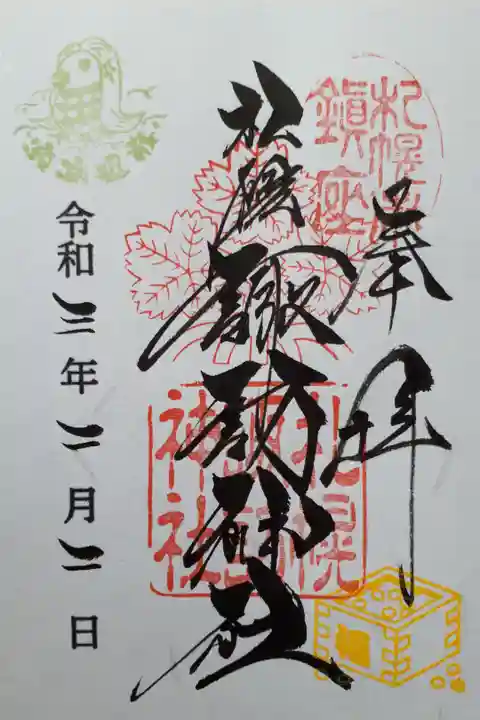 奉拝
札幌
鎮座
札幌諏訪神社
札幌
諏訪
神社
令和三年二月二日